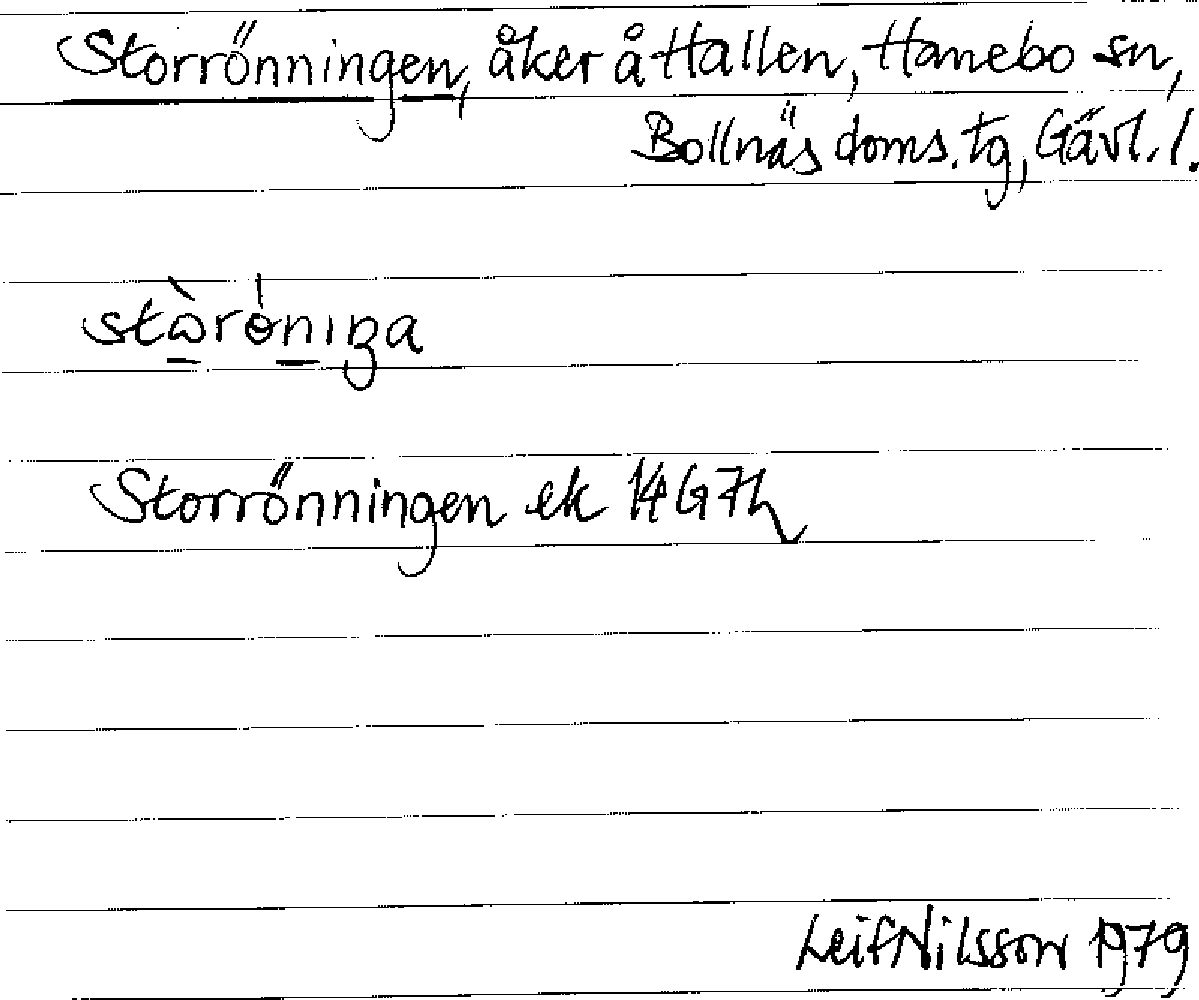 Storrönningen, åker å Hallen, Hanebo sn,
Bollnäs doms. tg, Gävl. l.
Storrönningen ek 14G7h
Leif Nilsson 1979